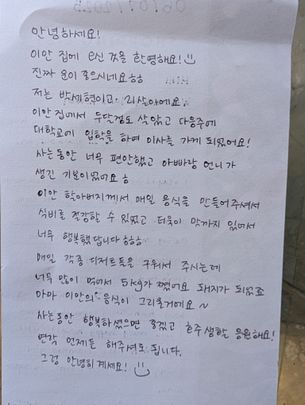 안녕하세요!
이안 집에 오신 것을 환영해요! :)
진짜 운이 좋으시네요 ㅎㅎ
저는 박세혁이고 21살이에요.
이안 집에서 두달정도 살았고 다음주에
대학교에 입학을 하며 이사를 가게 되었어요!
사는동안 너무 편안했고 아빠랑 언니가
생긴 기분이었어요 ㅎ
이안 할아버지께서 매일 음식을 만들어주셔서
식비로 절감할 수 있었고 더욱이 맛까지 있어서
너무 행복했답니다 ㅎㅎㅎ
매일 각종 디저트도를 구워서 주시는데
너무 많이 먹어서 5kg가 쪘어요 돼지가 되었죠
아마 이안의 음식이 그리울거에요 ~
사는동안 행복하셨으면 좋겠고 호주생활 응원해요!
연락 언제든 해주셔도 됩니다.
그럼 안녕히 계세요! :)